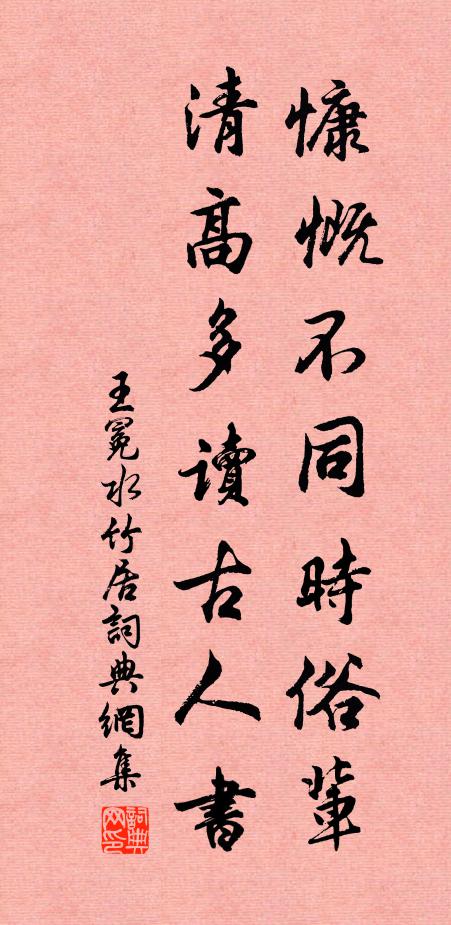 慷慨不同時俗輩
清高多讀古人書
王冕水竹居詞典網集
詞典
网印